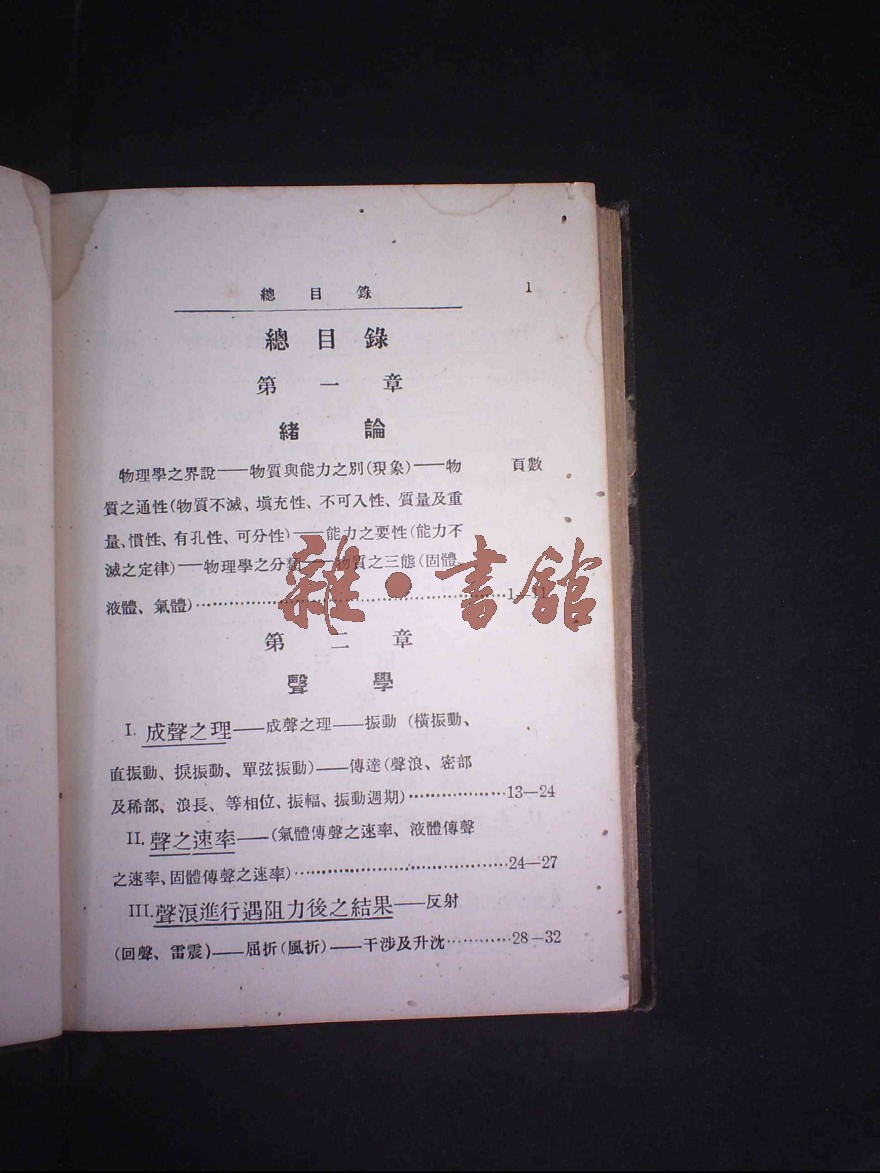 總目錄 1
總目錄
第一章
緒論
物理學之界說——物質與能力之別(現象)——物 頁數
質之通性(物質不滅、塡充性、不可入性、質量及重
量、慣性、有孔性、可分性)——能力之要性(能力不
滅之定律)——物理學之分類——物質之三態(固體、
液體、氣體)………………………………………1—11
雜·書館
第二章
聲學
I. 成聲之理——成聲之理——振動(橫振動、
直振動、捩振動、單弦振動)——傳達(聲浪、密部
及稀部、浪長、等相位、振幅、振動週期)………………13—24
II. 聲之速率——(氣體傳聲之速率、液體傳聲
之速率、固體傳聲之速率)…………………………24—27
III. 聲浪進行遇阻力後之結果——反射
(回聲、雷震)——屈折(風折)——干涉及升沈…………28—32